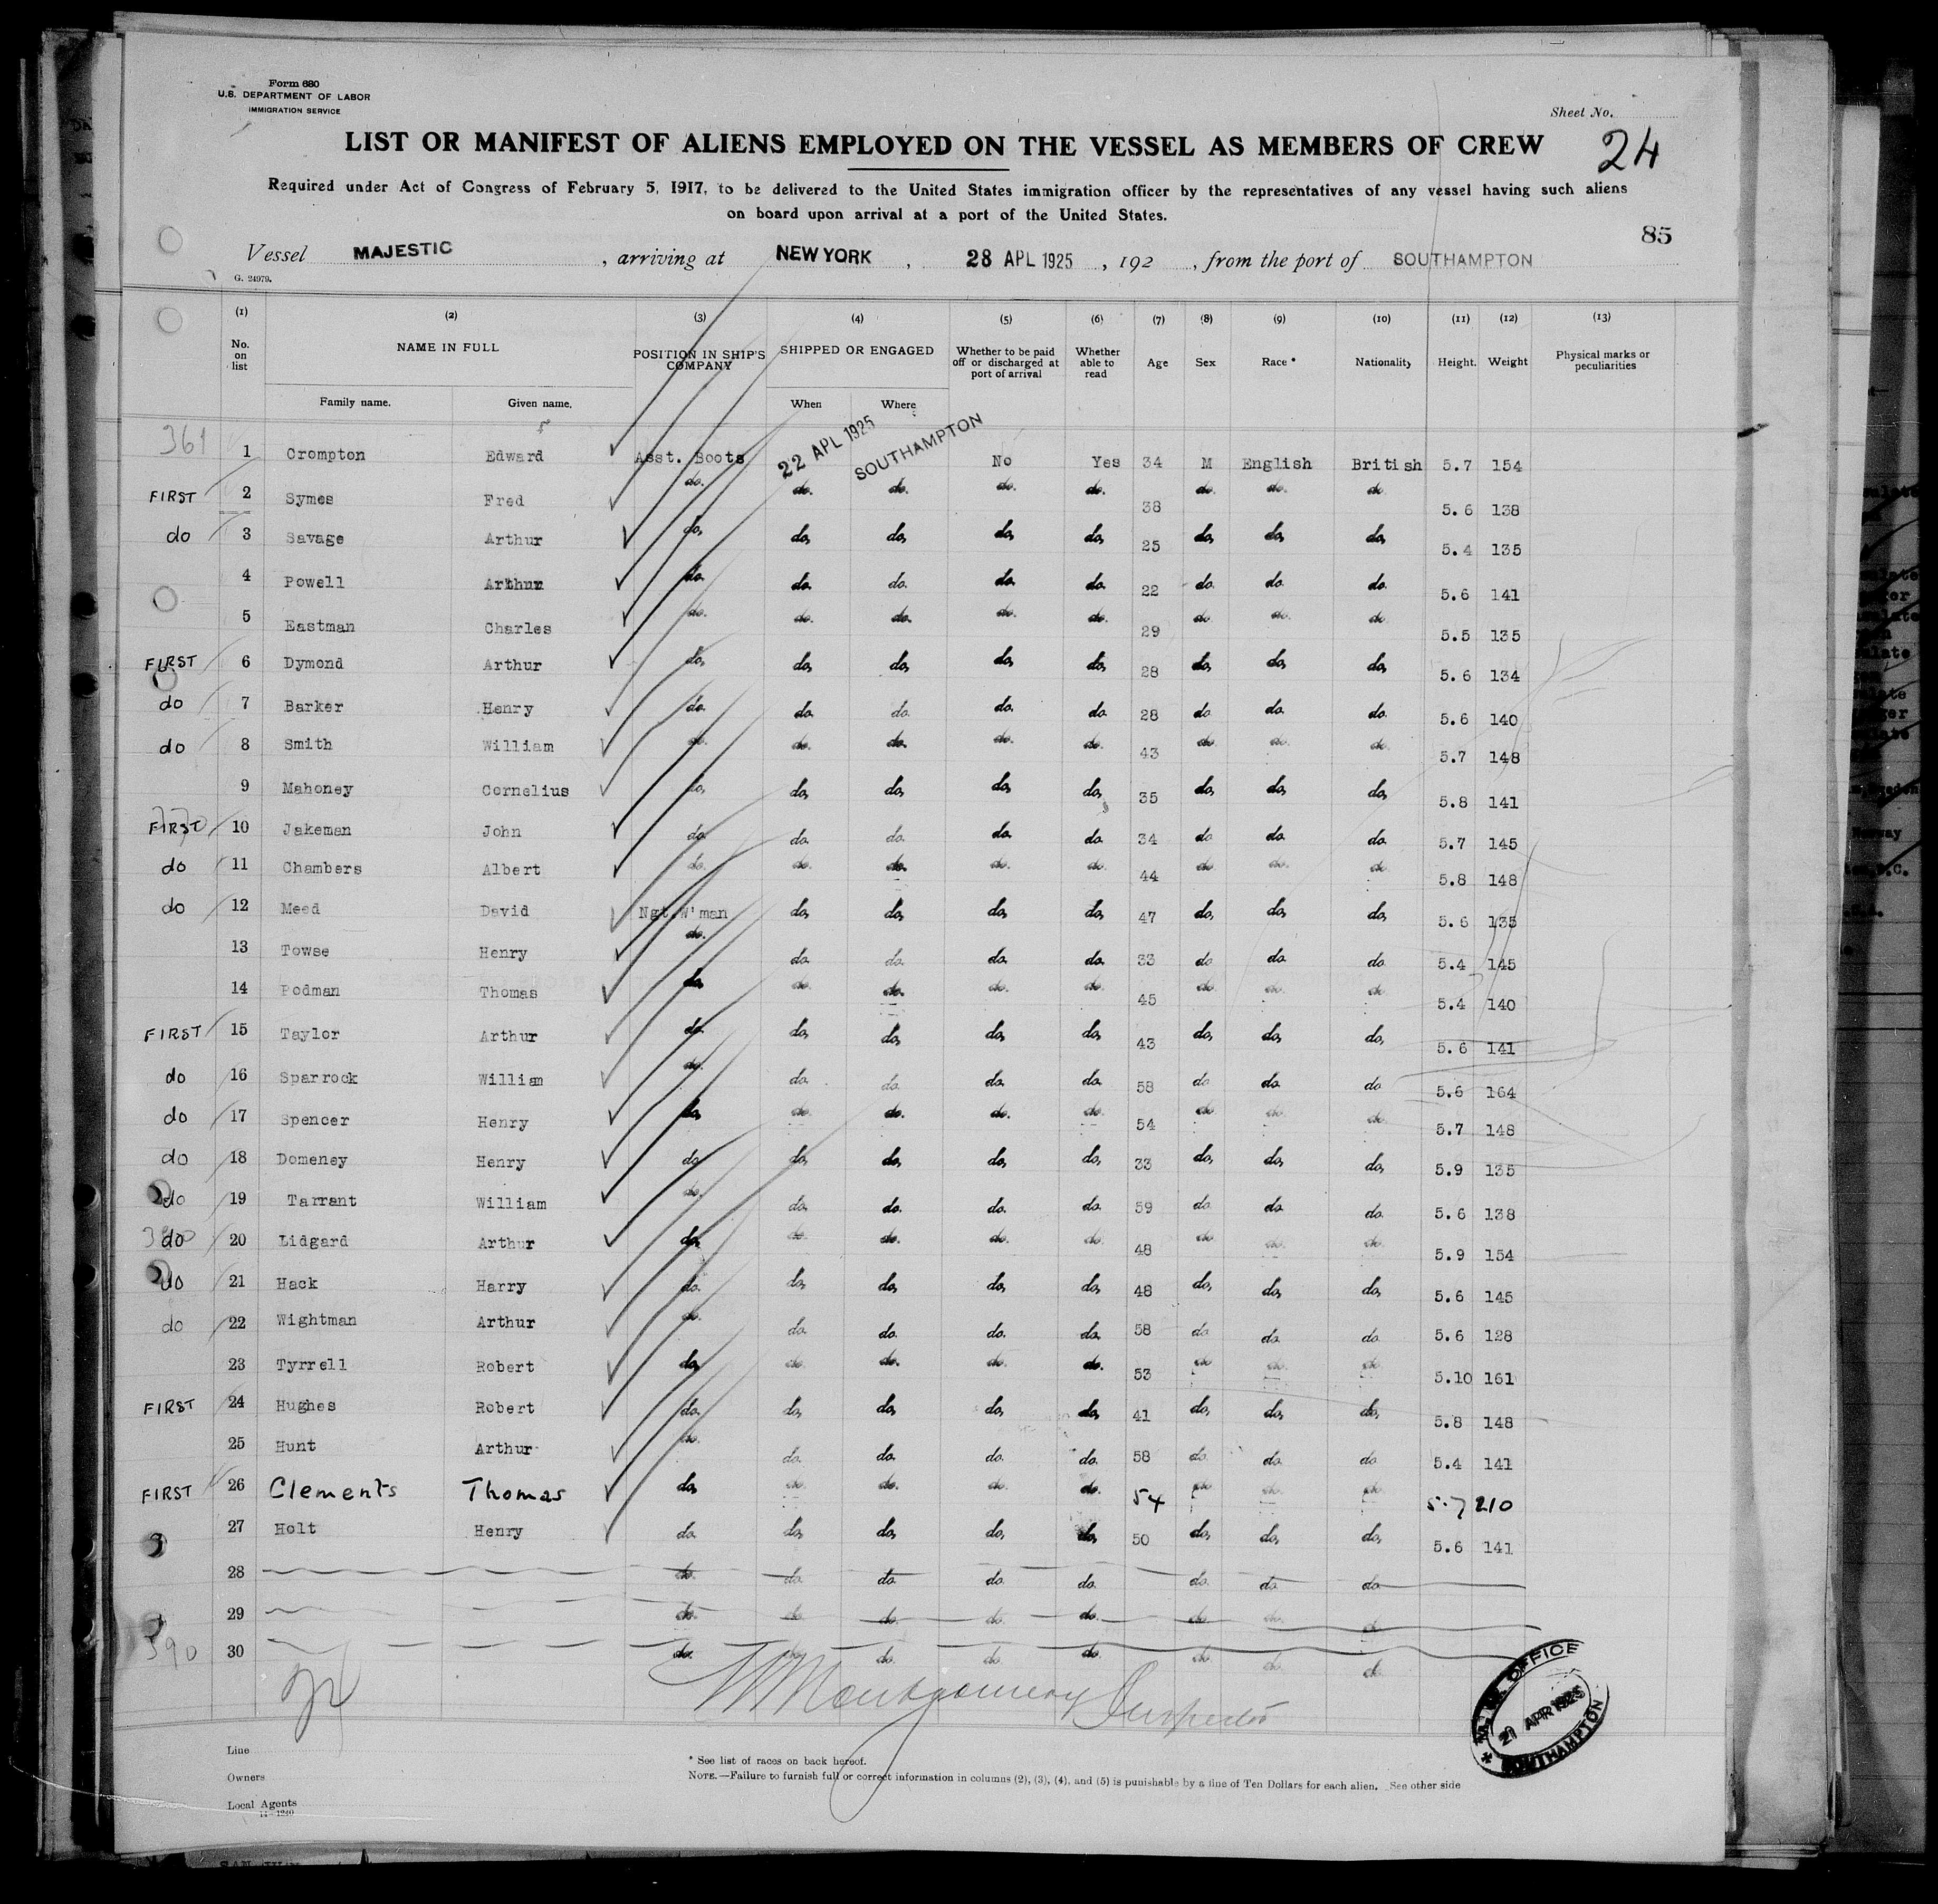 Form 680
U.S. DEPARTMENT OF LABOR
IMMIGRATION SERVICE
Sheet No.
24
LIST OR MANIFEST OF ALIENS EMPLOYED ON THE VESSEL AS MEMBERS OF CREW
Required under Act of Congress of February 5, 1917, to be delivered to the United States immigration officer by the representatives of any vessel having such aliens
on board upon arrival at a port of the United States.
85
Vessel MAJESTIC, arriving at NEW YORK, 28 APL 1925, 192 , from the port of SOUTHAMPTON
G. 24979.
(1) (2) (3) (4) (5) (6) (7) (8) (9) (10) (11) (12) (13)
No. on list NAME IN FULL POSITION IN SHIP'S COMPANY SHIPPED OR ENGAGED Whether to be paid off or discharged at port of arrival Whether able to read Age Sex Race * Nationality Height. Weight Physical marks or peculiarities
Family name. Given name. When Where
361 1 Crompton Edward Asst. Boots 22 APL 1925 SOUTHAMPTON No Yes 34 M English British 5.7 154
FIRST 2 Symes Fred do. do. do. do. do. 38 do. do. do 5.6 138
do 3 Savage Arthur do, do, do, do, do, 25 do, do, do, 5.4 135
4 Powell Arthur do. do. do. do. do. 22 do. do. do. 5.6 141
5 Eastman Charles do. do. do. do. do. 29 do. do. do 5.5 135
FIRST 6 Dymond Arthur do, do, do, do, do, 28 do, do, do, 5.6 134
do 7 Barker Henry do. do. do. do. do. 28 do do. do. 5.6 140
do 8 Smith William do. do. do. do. do. 43 do do. do. 5.7 148
9 Mahoney Cornelius do, do, do, do, do, 35 do, do, do, 5.8 141
FIRST 10 Jakeman John do. do. do. do. do. 34 do do. do. 5.7 145
do 11 Chambers Albert do. do. do. do. do. 44 do do. do 5.8 148
do 12 Meed David Ngt.W'man do, do, do, do, 47 do, do, do, 5.6 135
13 Towse Henry do. do. do. do. do. 33 do do. do 5.4 145
14 Podman Thomas do, do. do. do. do. 45 do do. do 5.4 140
FIRST 15 Taylor Arthur do. do, do, do, do, 43 do, do, do, 5.6 141
do 16 Sparrock William do. do. do. do. do. 58 do do. do 5.6 164
do 17 Spencer Henry do, do. do. do. do. 54 do do. do 5.7 148
do 18 Domeney Henry do. do, do, do, do, 33 do, do, do, 5.9 135
do 19 Tarrant William do. do. do. do. do. 59 do do. do. 5.6 138
do 20 Lidgard Arthur do, do. do. do. do. 48 do do. do. 5.9 154
do 21 Hack Harry do. do, do, do, do, 48 do, do, do, 5.6 145
do 22 Wightman Arthur do. do. do. do. do. 58 do do. do. 5.6 128
23 Tyrrell Robert do, do. do. do. do. 53 do do. do. 5.10 161
FIRST 24 Hughes Robert do. do, do, do, do, 41 do, do, do, 5.8 148
25 Hunt Arthur do. do. do. do. do. 58 do. do. do 5.4 141
FIRST 26 Clements Thomas do, do. do. do. do. 54 do do. do 5.7 210
27 Holt Henry do. do, do, do, do, 50 do, do, do, 5.6 141
28 do. do. do. do. do. do. do. do
29 do. do. do. do. do. do. do. do
390 30 do. do. do. do. do. do. do. do.
Montgomery Inspector
OFFICE
21 APR 1925
SOUTHAMPTON
Line
Owners
Local Agents
14—1240
* See list of races on back hereof.
NOTE.—Failure to furnish full or correct information in columns (2), (3), (4), and (5) is punishable by a fine of Ten Dollars for each alien. See other side